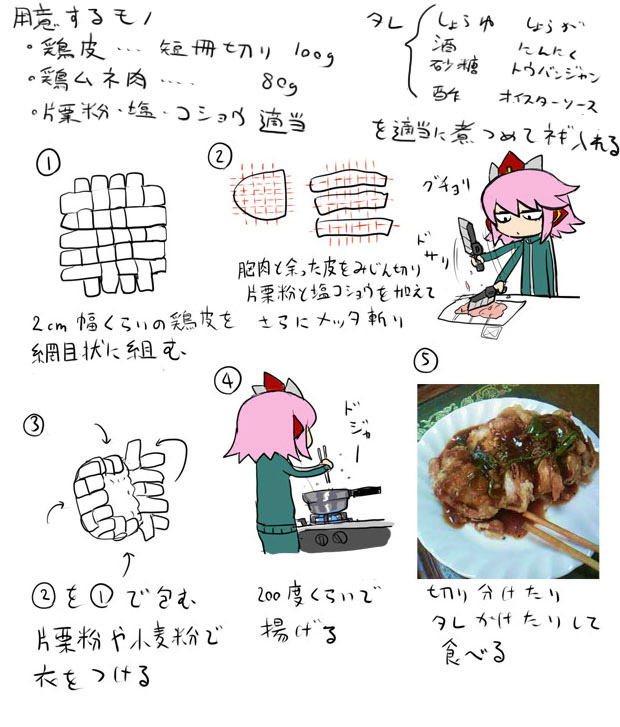 用意するモノ
・鶏皮…短冊切り 100g
・鶏ムネ肉…… 80g
・片栗粉・塩・コショウ 適当
タレ
しょうゆ しょうが
酒 にんにく
砂糖 トウバンジャン
酢 オイスターソース
を適当に煮つめてネギ入れる
①
2cm幅くらいの鶏皮を
網目状に組む
②
胸肉と余った皮をみじん切り
片栗粉と塩コショウを加えて
さらにメッタ斬り
グチョリ
ドサリ
③
②を①で包む
片栗粉や小麦粉で
衣をつける
④
ドジャー
200度くらいで
揚げる
⑤
切り分けたり
タレかけたりして
食べる